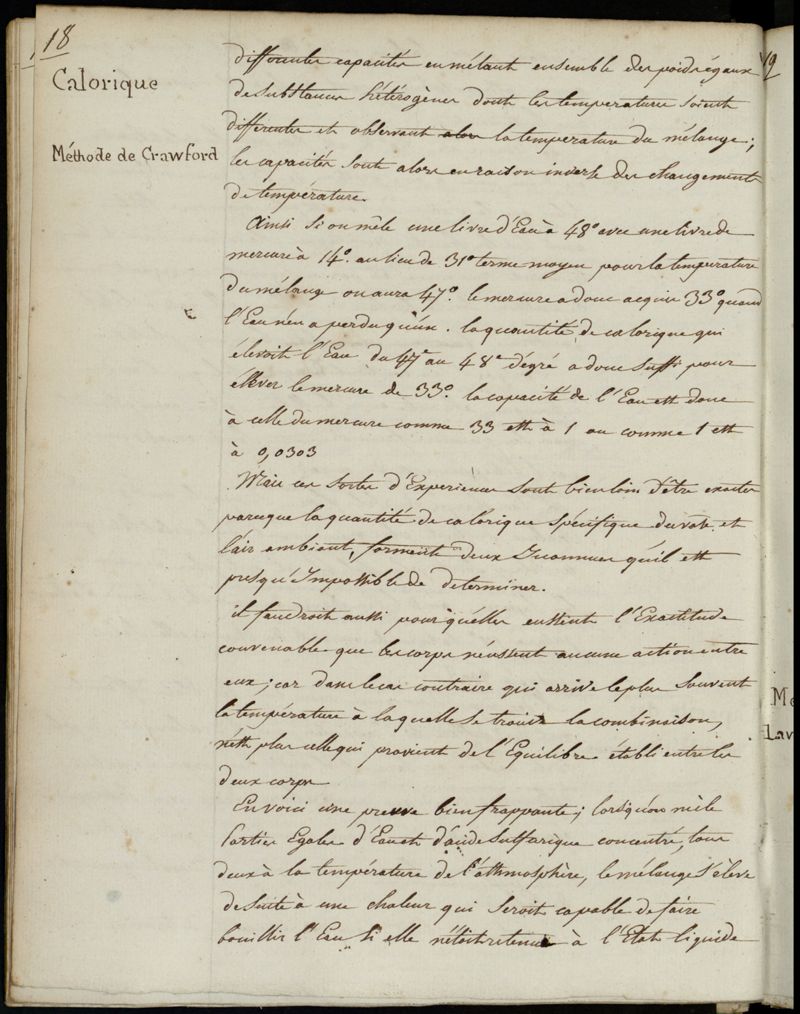 18
Calorique
Méthode de Crawford
differentes capacités en mêlant ensemble des poids égaux
de substances hétérogènes dont les temperatures soient
differentes et observant alors la temperature du mélange;
les capacités sont alors en raison inverse des changements
de température.
Ainsi si on mêle une livre d'Eau à 48° avec une livre de
mercure à 14°. au lieu de 31° terme moyen pour la temperature
du mélange on aura 47°. le mercure a donc acquis 33° quand
l'Eau n'en a perdu qu'un. la quantité de calorique qui
élevoit l'Eau du 47e au 48e dégré a donc suffi pour
éléver le mercure de 33°. la capacité de l'Eau est donc
à celle du mercure comme 33 est à 1 ou comme 1 est
à 0,0303
Mais ces sortes d'Experiences sont bien loin d'être exactes
parceque la quantité de calorique spécifique du vase et
l'air ambiant, forment deux Inconnues qu'il est
presqu'Impossible de determiner.
il faudroit aussi pour qu'elles eussent l'Exactitude
convenable que les corps n'eussent aucune action entre
eux; car dans le cas contraire qui arrive le plus souvent
la température à laquelle se trouve la combinaison,
n'est plus celle qui provient de l'Equilibre établi entre les
deux corps
En voici une preuve bien frappante; lorsqu'on mêle
parties Egales d'Eau et d'acide sulfurique concentré, tous
deux à la température de l'athmosphère, le mélange s'élève
de suite à une chaleur qui seroit capable de faire
bouillir l'Eau si elle n'étoit retenue à l'Etat liquide
19
Me
Lav